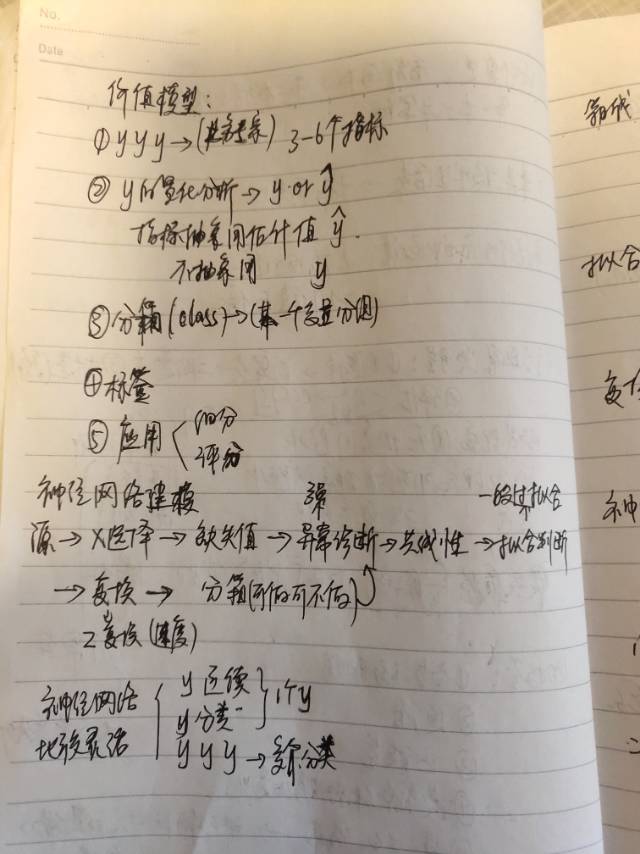 No.
Date
价值模型：
① y y y → ( ) 3-6个指标
② y的量化分析 → y or ŷ
指标抽象用估计值 ŷ.
不抽象用 y
③ 分箱(class) → (某一个变量分组)
④ 标签
⑤ 应用 细分
评分
神经网络建模
源 → X选择 → 缺失值 → 异常诊断 → 共线性 → 拟合判断
→ 变换 → 分箱(可做可不做)
Z变换(速度)
神经网络 y连续 1个y
y分类
y y y → 多个分类
拟合
神